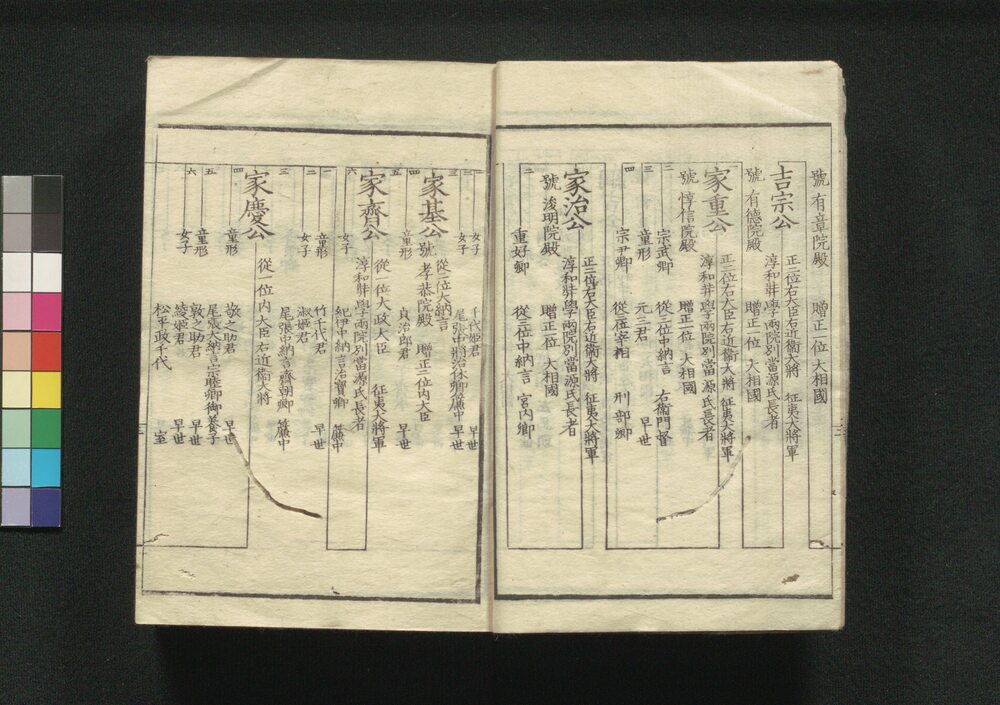 號 有章院殿 贈正一位 大相國
吉宗公
正二位右大臣右近衞大將 征夷大將軍
淳和弉學兩院別當源氏長者
號 有德院殿 贈正一位 大相國
家重公
正二位右大臣右近衞大將 征夷大將軍
淳和弉學兩院別當源氏長者
號 惇信院殿 贈正一位 大相國
二 宗武卿 從二位中納言 右衞門督
三 童形 元三君 早世
四 宗尹卿 從三位宰相 刑部卿
一 家治公
正二位右大臣右近衞大將 征夷大將軍
淳和弉學兩院別當源氏長者
號 浚明院殿 贈正一位 大相國
二 重好卿 從三位中納言 宮內卿
一 女子 千代姬君 早世
二 女子 尾張中將治休卿簾中 早世
三 家基公
從二位大納言
號 孝恭院殿 贈正二位內大臣
四 童形 貞治郎君 早世
五 家齊公
從一位大政大臣 征夷大將軍
淳和弉學兩院別當源氏長者
六 女子 紀伊中納言治寶卿 簾中
一 童形 竹千代君 早世
二 女子 淑姬君
尾張中納言齊朝卿 簾中
三 家慶公
從一位內大臣右近衞大將
四 童形 敬之助君 早世
尾張大納言宗睦卿御養子
五 童形 敦之助君 早世
六 女子 綾姬君 早世
松平政千代 室